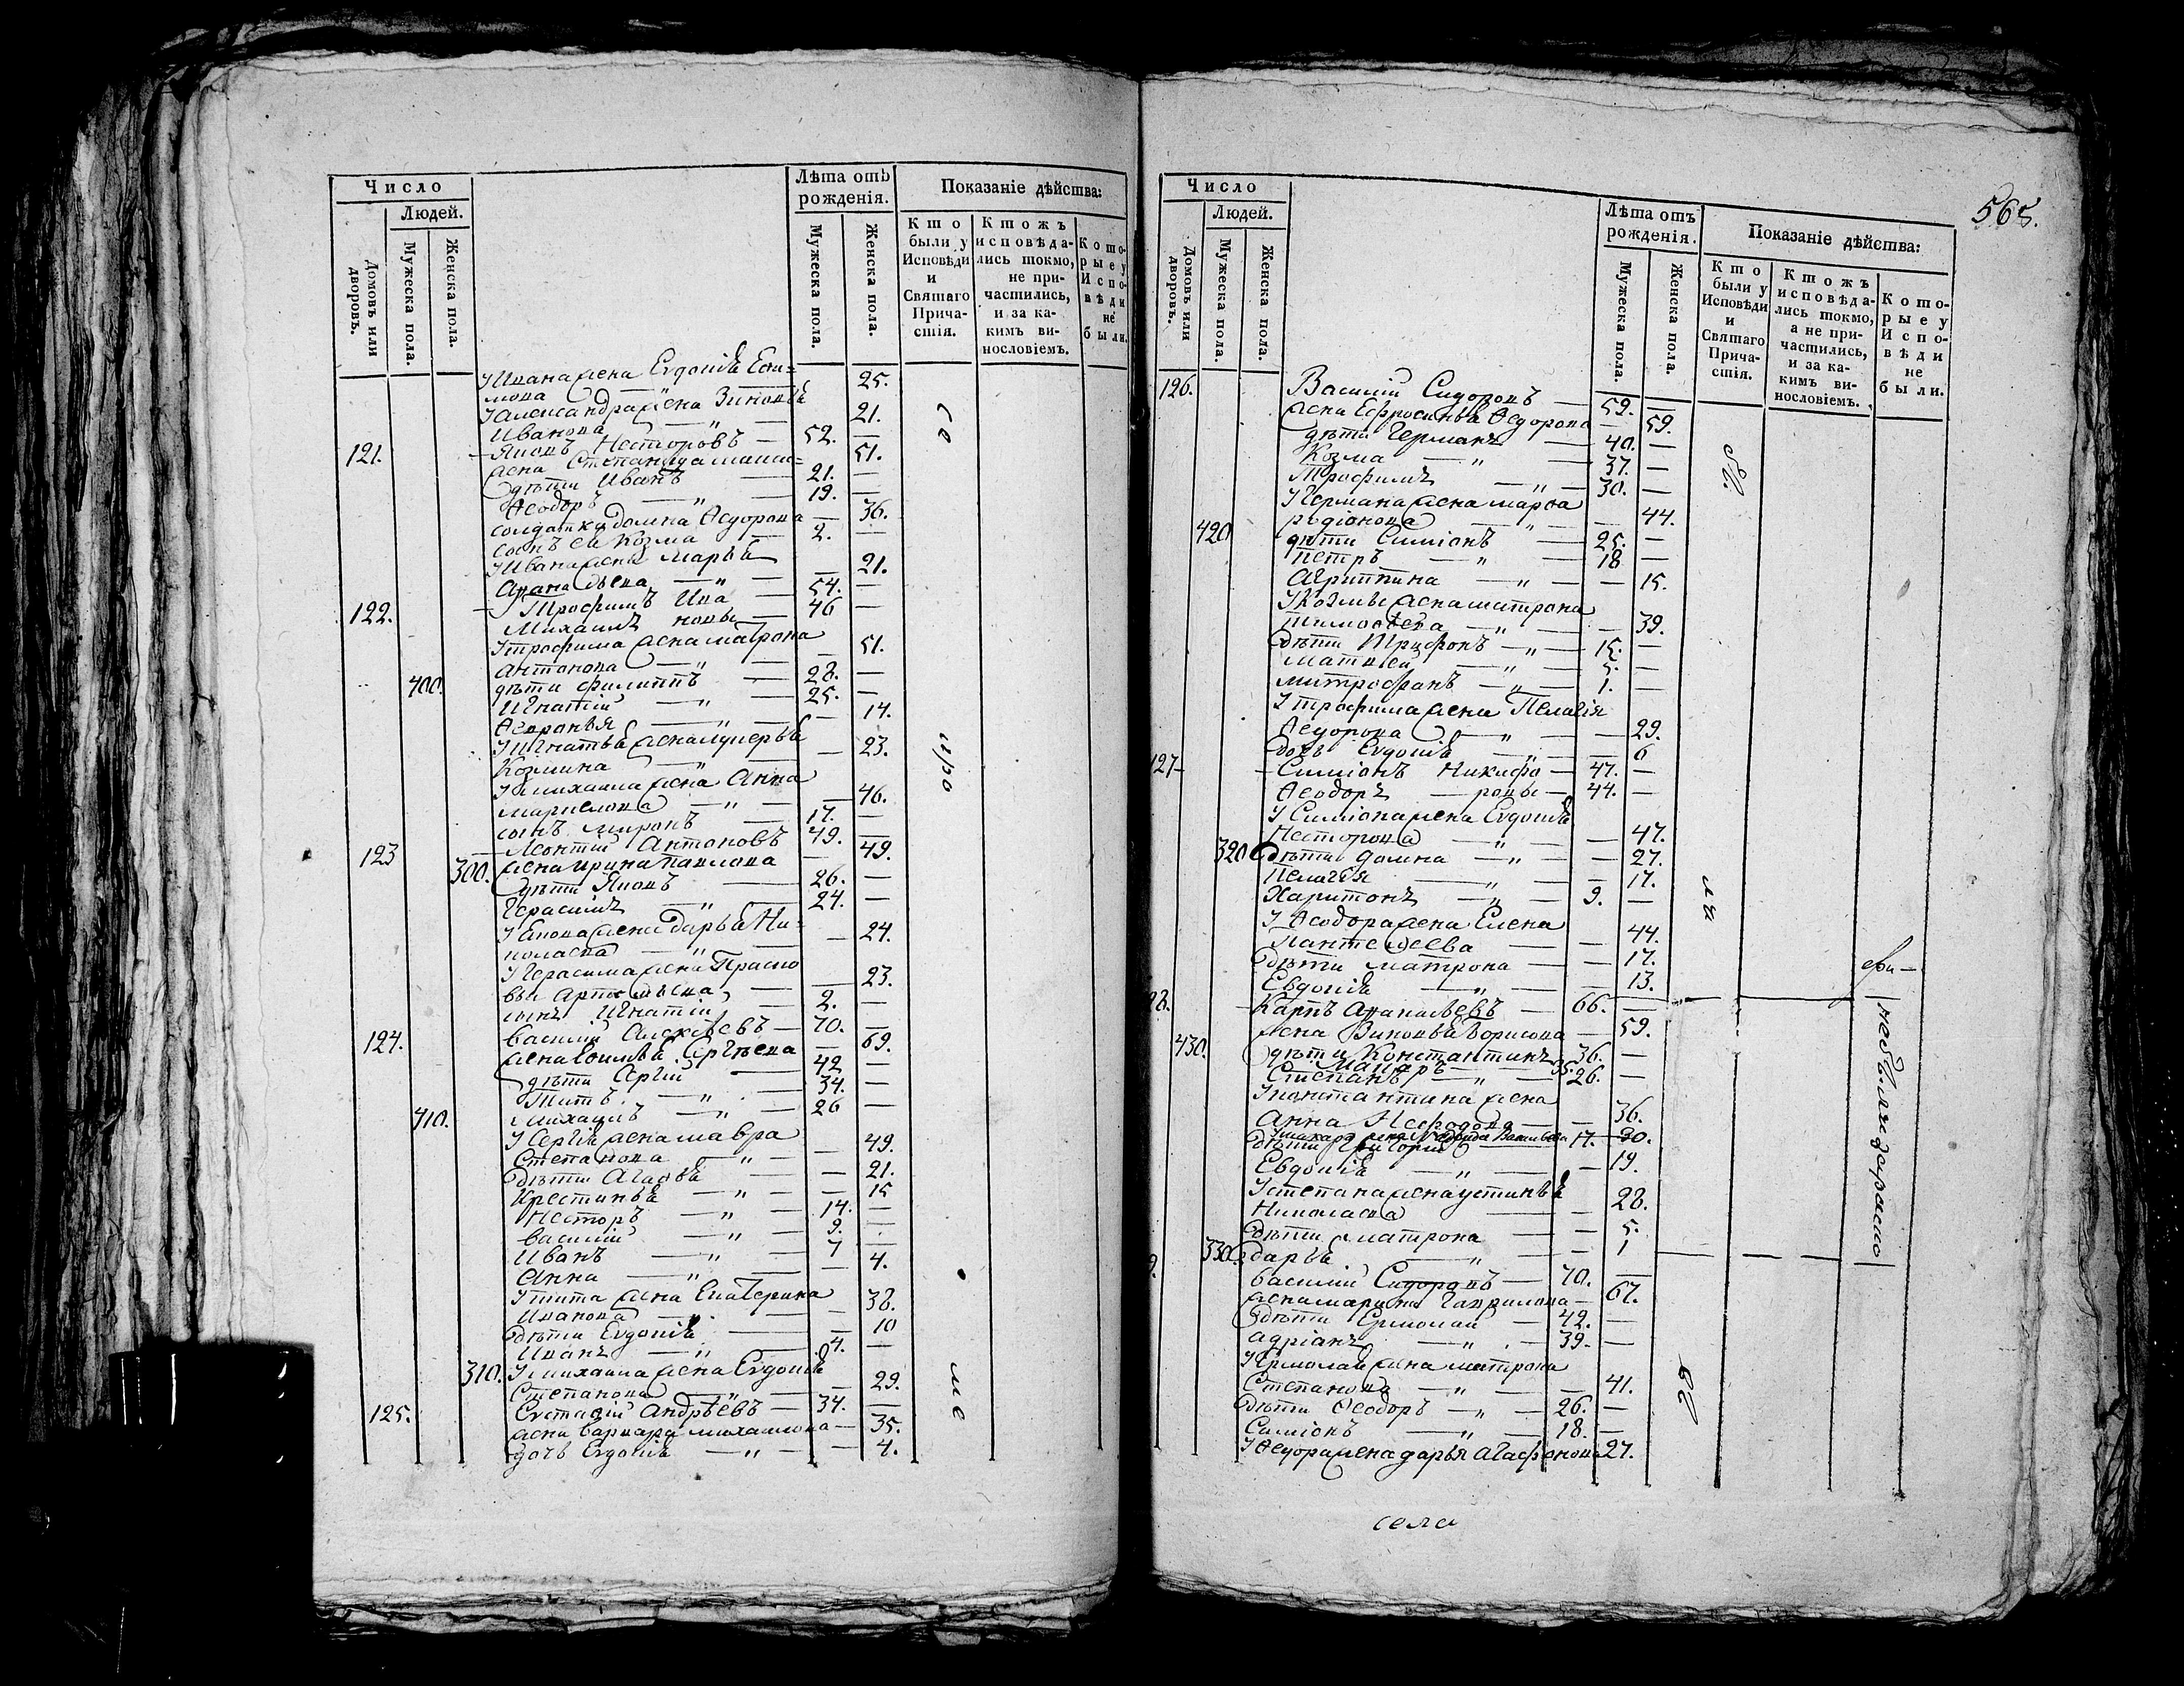 Число
Людей.
Домовъ или дворовъ.
Мужеска пола.
Женска пола.
Лѣта отъ рожденія.
Мужеска пола.
Женска пола.
Показаніе дѣйства:
Кто были у Исповѣди и Святаго Причастія.
Ктожъ исповѣдались токмо, не причастились, и за какимъ винословіемъ.
Которые у Исповѣди не были.
У Ивана жена Евдокія
25.
У Александра жена Зиновія
Иванова — " — 21.
121. Яковъ Несторовъ — 52. —
жена Степанида 51.
дѣти Иванъ — 21. —
Ѳеодоръ — " — 19. —
солдатка домна Ѳедорова — 36.
сынъ ея Козма — 2. —
У Ивана жена Марья
— " — 21.
122. Трофимъ Ива — 54. —
Михаилъ новы — 46 —
У трофима жена матрона
антонова — " — 51.
400. дѣти филиппъ — 28. —
Игнатій — " — 25. —
Ѳевронья — " — 14.
У Игнатья жена лукерья
Козмина — " — 23.
У михаила жена Анна
— " — 46.
сынъ миронъ — 17. —
123 Леонтій Антоновъ 49. —
300. жена ирина павлова — 49.
дѣти Яковъ — 26. —
Герасимъ — " — 24. —
У Якова жена дарья Ни=
колаева — " — 24.
У Герасима жена Праско
вья — 23.
сынъ Игнатій — 2. —
124. василій Алексѣевъ — 70. —
жена 69.
дѣти — 42 —
Титъ — " — 34. —
410. михаилъ — " — 26 —
У Сергія жена мавра
Степанова — " — 49.
дѣти Агафья — 21.
Крестинья — " — 15
Несторъ — " — 14. —
василій — " — 9. —
Иванъ — " — 7 —
Анна — " — 4.
У тита жена Екатерина
Иванова — " — 38.
дѣти Евдокія — 10
Иванъ — " — 4. —
310. У михаила жена Евдокія
Степанова — " — 29.
125. Евстафій Андрѣевъ — 34. —
жена варвара михаилова — 35.
дочь Евдокія — " — 4.
565.
Число
Людей.
Домовъ или дворовъ.
Мужеска пола.
Женска пола.
Лѣта отъ рожденія.
Мужеска пола.
Женска пола.
Показаніе дѣйства:
Кто были у Исповѣди и Святаго Причастія.
Ктожъ исповѣдались токмо, а не причастились, и за какимъ винословіемъ.
Которые у Исповѣди не были.
126. Василій Сидоровъ — 59. —
жена Ефросинья Ѳедорова — 59.
дѣти Германъ — 40. —
Козма — " — 37. —
Трофимъ — " — 30. —
У Германа жена марѳа
родіонова — " — 44.
420 дѣти Симіонъ — " — 25. —
петръ — " — 18 —
Агриппина — " — 15.
У Козмы жена матрона
тимоѳеева — " — 39.
дѣти Трифонъ — " — 15. —
матвей — " — 5. —
митрофанъ — " — 1. —
У трофима жена Пелагія
Ѳедорова — " — 29.
дочь Евдокія — " — 6
127 — Симіонъ Никифо — 47. —
Ѳеодоръ — ровы — 44. —
У Симіона жена Евдокія
Несторова — " — 47.
320 дѣти домна — " — 27.
Пелагія — " — 17.
Харитонъ — " — 9. —
У Ѳеодора жена Елена
Пантелѣева — 44.
дѣти матрона — 17.
Евдокія — " — 13.
28. Карпъ Ананьевъ — 66. —
жена Зиновья Борисова — 59.
430. дѣти Константинъ 36. —
Макаръ — 35.
Степанъ — " — 26. —
У константина жена
Анна — 36.
У макара жена Васильева 30.
дѣти Григорій — 17. —
Евдокія — " — 19.
У степана жена устинья
Николаева — 28.
дѣти матрона — 5.
330. дарья — " — 1
9. василій Сидоровъ — 70. —
жена марина Гаврилова — 67.
дѣти Ермолай — 42. —
адріанъ — " — 39. —
У Ермолая жена матрона
Степанова — " — 41.
дѣти Ѳеодоръ — " — 26. —
Симіонъ — " — 18. —
У Ѳедора жена дарья Агафонова 27.
села